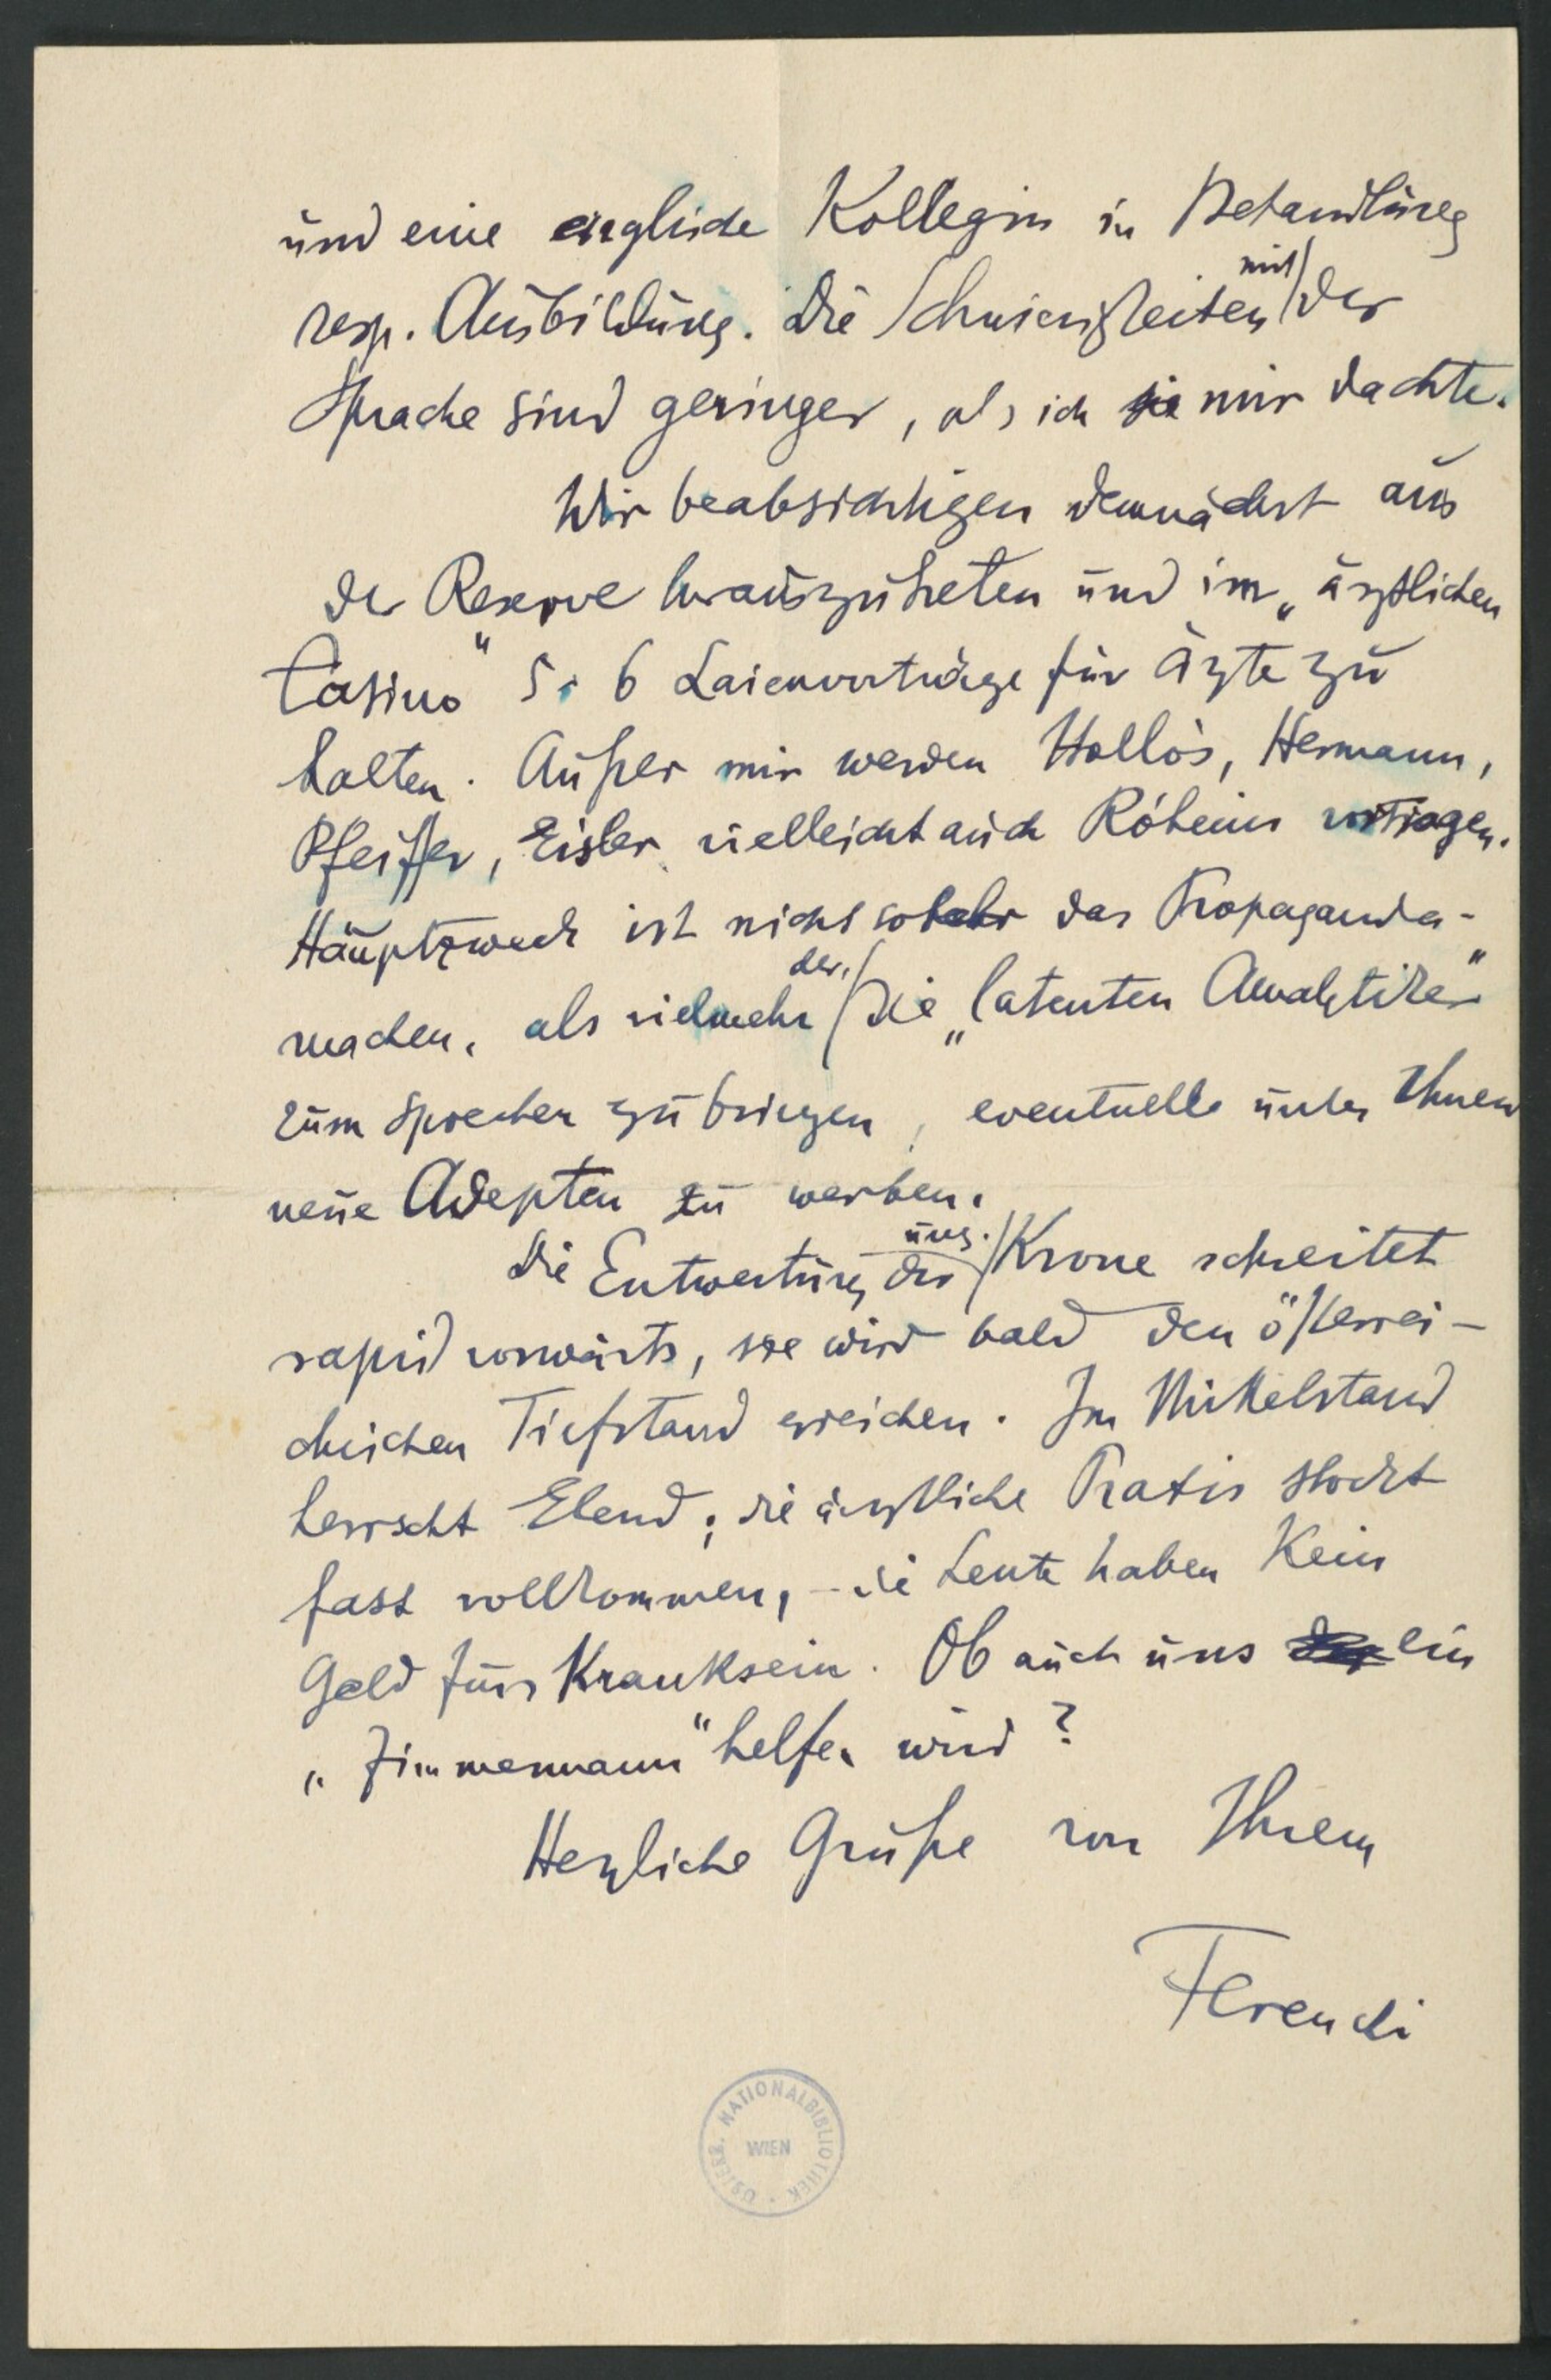 und eine englische Kollegin in Behandlung
resp. Ausbildung. Die Schwierigkeiten mit der
Sprache sind geringer, als ich sie mir dachte.
Wir beabsichtigen demnächst aus
der Reserve herauszutreten und im „ärztlichen
Casino" 5, 6 Laienvorträge für Ärzte zu
halten. Außer mir werden Hollós, Hermann,
Pfeiffer, Eisler vielleicht auch Róheim vortragen.
Hauptzweck ist nicht sosehr das Propaganda-
machen, als vielmehr der, die „latenten Analytiker"
zum Sprechen zu bringen, eventuell unter Ihnen
neue Adepten zu werben.
Die Entwertung der ung. Krone schreitet
rapid vorwärts, sie wird bald den österrei-
chischen Tiefstand erreichen. Im Mittelstand
herrscht Elend; die ärztliche Praxis stockt
fast vollkommen, – die Leute haben kein
Geld fürs Kranksein. Ob auch uns ein
„Zimmermann" helfen wird?
Herzliche Grüße von Ihrem
Ferenczi
ÖSTERR. NATIONALBIBLIOTHEK · WIEN